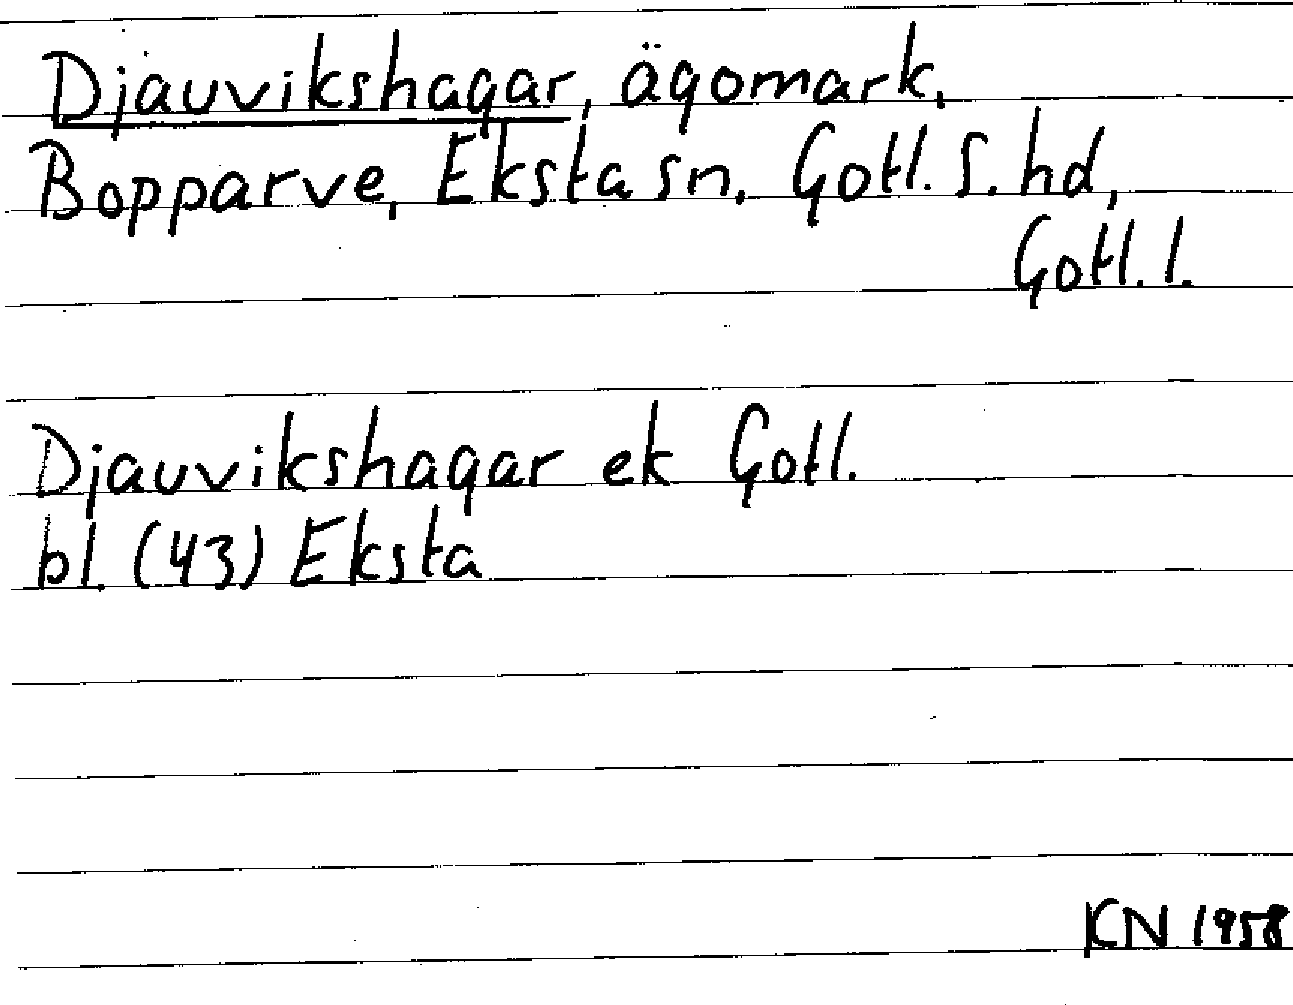 Djauvikshagar, ägomark,
Bopparve, Eksta sn. Gotl. S. hd,
Gotl. l.
Djauvikshagar ek Gotl.
bl. (43) Eksta
KN 1958